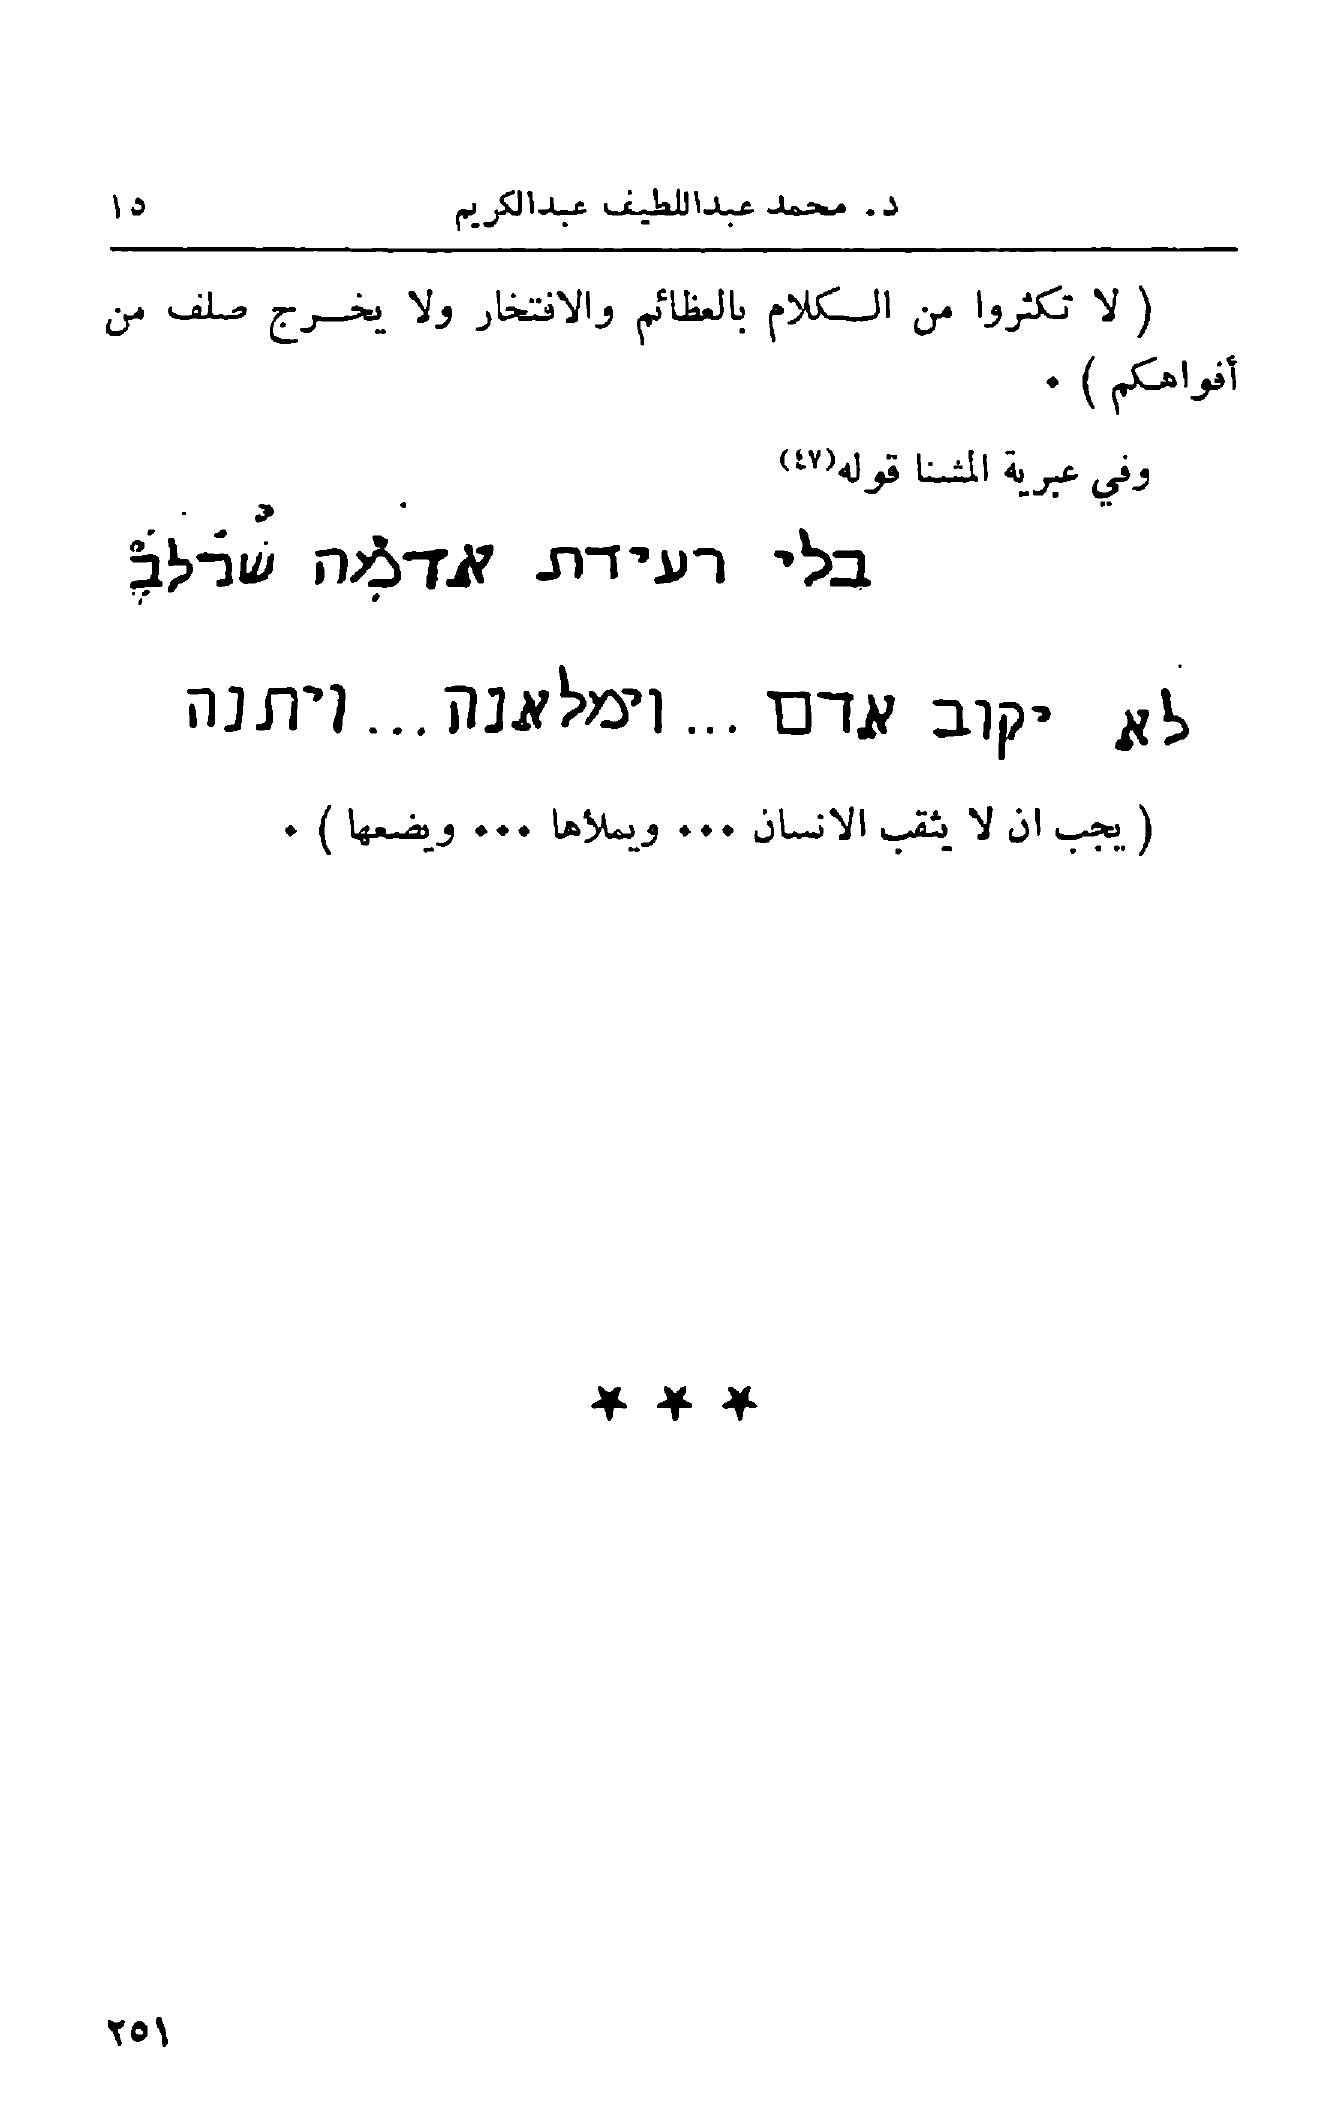 د. محمد عبداللطيف عبدالكريم ١٥
( لا تكثروا من الـكلام بالعظائم والافتخار ولا يخـرج صلف من
أفواهكم ) .
وفي عبرية المشنا قوله(٤٧)
בלי רעידת אדמה
לא יקוב אדם ... וימלאנה ... ויתנה
( يجب ان لا يثقب الانسان ... ويملأها ... ويضعها ) .
★ ★ ★
٢٥١